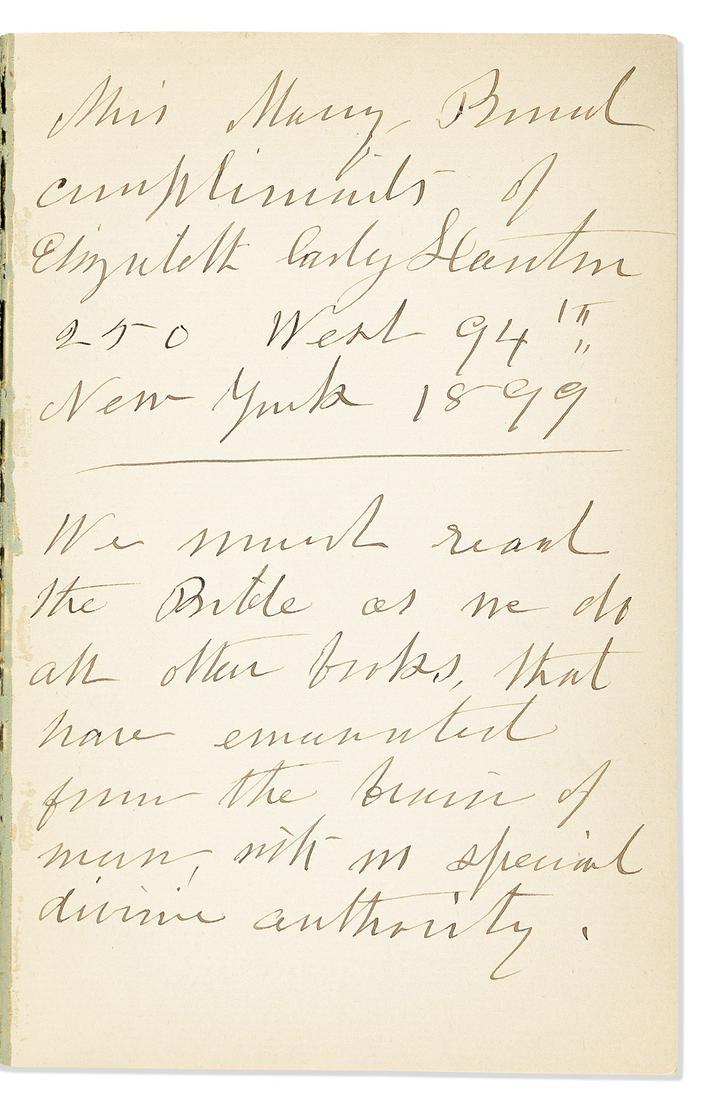 Miss Mary
compliments of
Elizabeth Cady Stanton
250 West 94th
New York 1899
We must read
the Bible as we do
all other books, that
have emanated
from the brain of
man, with no special
divine authority.